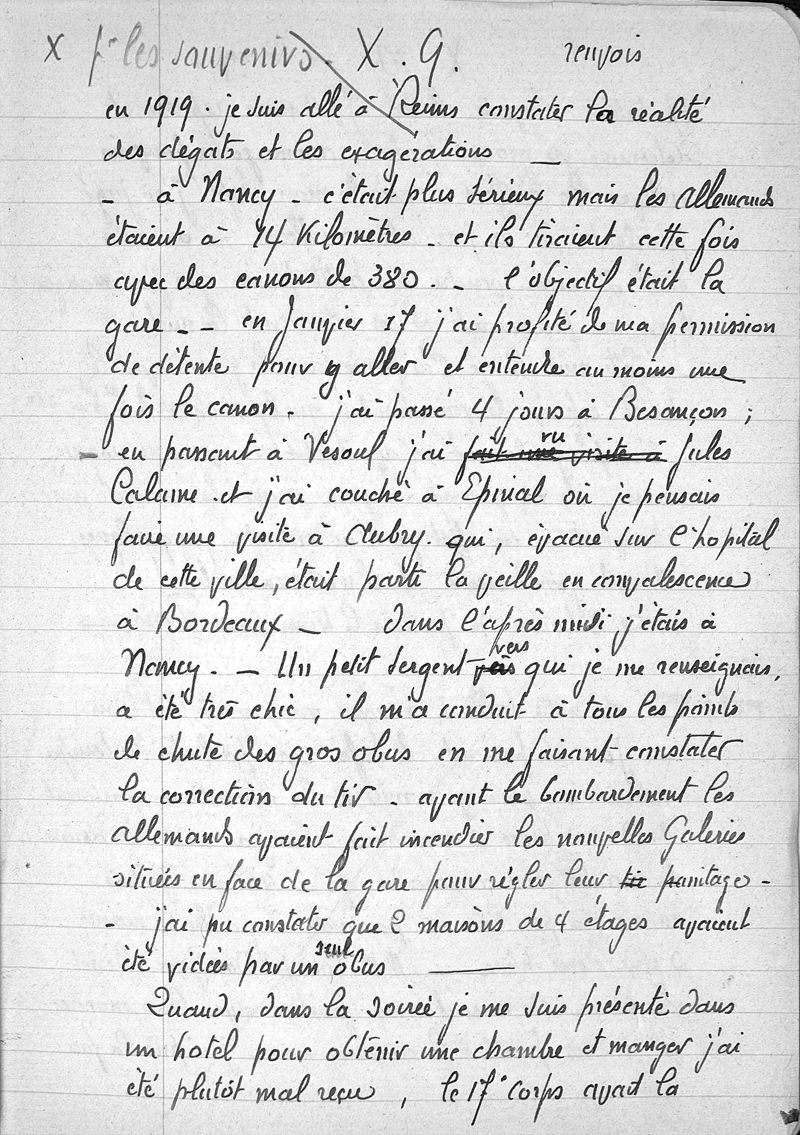 X pr les souvenirs. X. 9. renvois
en 1919. je suis allé à Reims constater la réalité
des dégats et les exagérations —
- à Nancy - c'était plus sérieux mais les allemands
étaient à 14 Kilomètres - et ils tiraient cette fois
avec des canons de 380. - l'objectif était la
gare - - en Janvier 17 j'ai profité de ma permission
de détente pour y aller et entendre au moins une
fois le canon. j'ai passé 4 jours à Besançon ;
- en passant à Vesoul j'ai fait une visite à vu Jules
Calame et j'ai couché à Epinal où je pensais
faire une visite à Aubry. qui, évacué sur l'hopital
de cette ville, était parti la veille en convalescence
à Bordeaux — dans l'après midi j'étais à
Nancy. - Un petit sergent vers qui je me renseignais,
a été très chic, il m'a conduit à tous les points
de chute des gros obus en me faisant constater
la correction du tir - avant le bombardement les
allemands avaient fait incendier les nouvelles Galeries
situées en face de la gare pour régler leur tir pointage -
- j'ai pu constater que 2 maisons de 4 étages avaient
été vidées par un seul obus —
Quand, dans la soirée je me suis présenté dans
un hotel pour obtenir une chambre et manger j'ai
été plutôt mal reçu, le 17e corps avait la